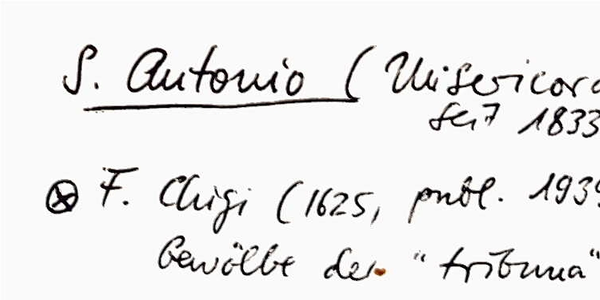 S. Antonio (Misericord
seit 1833
⊗ F. Chigi (1625, publ. 1939
Gewölbe der "tribuna"